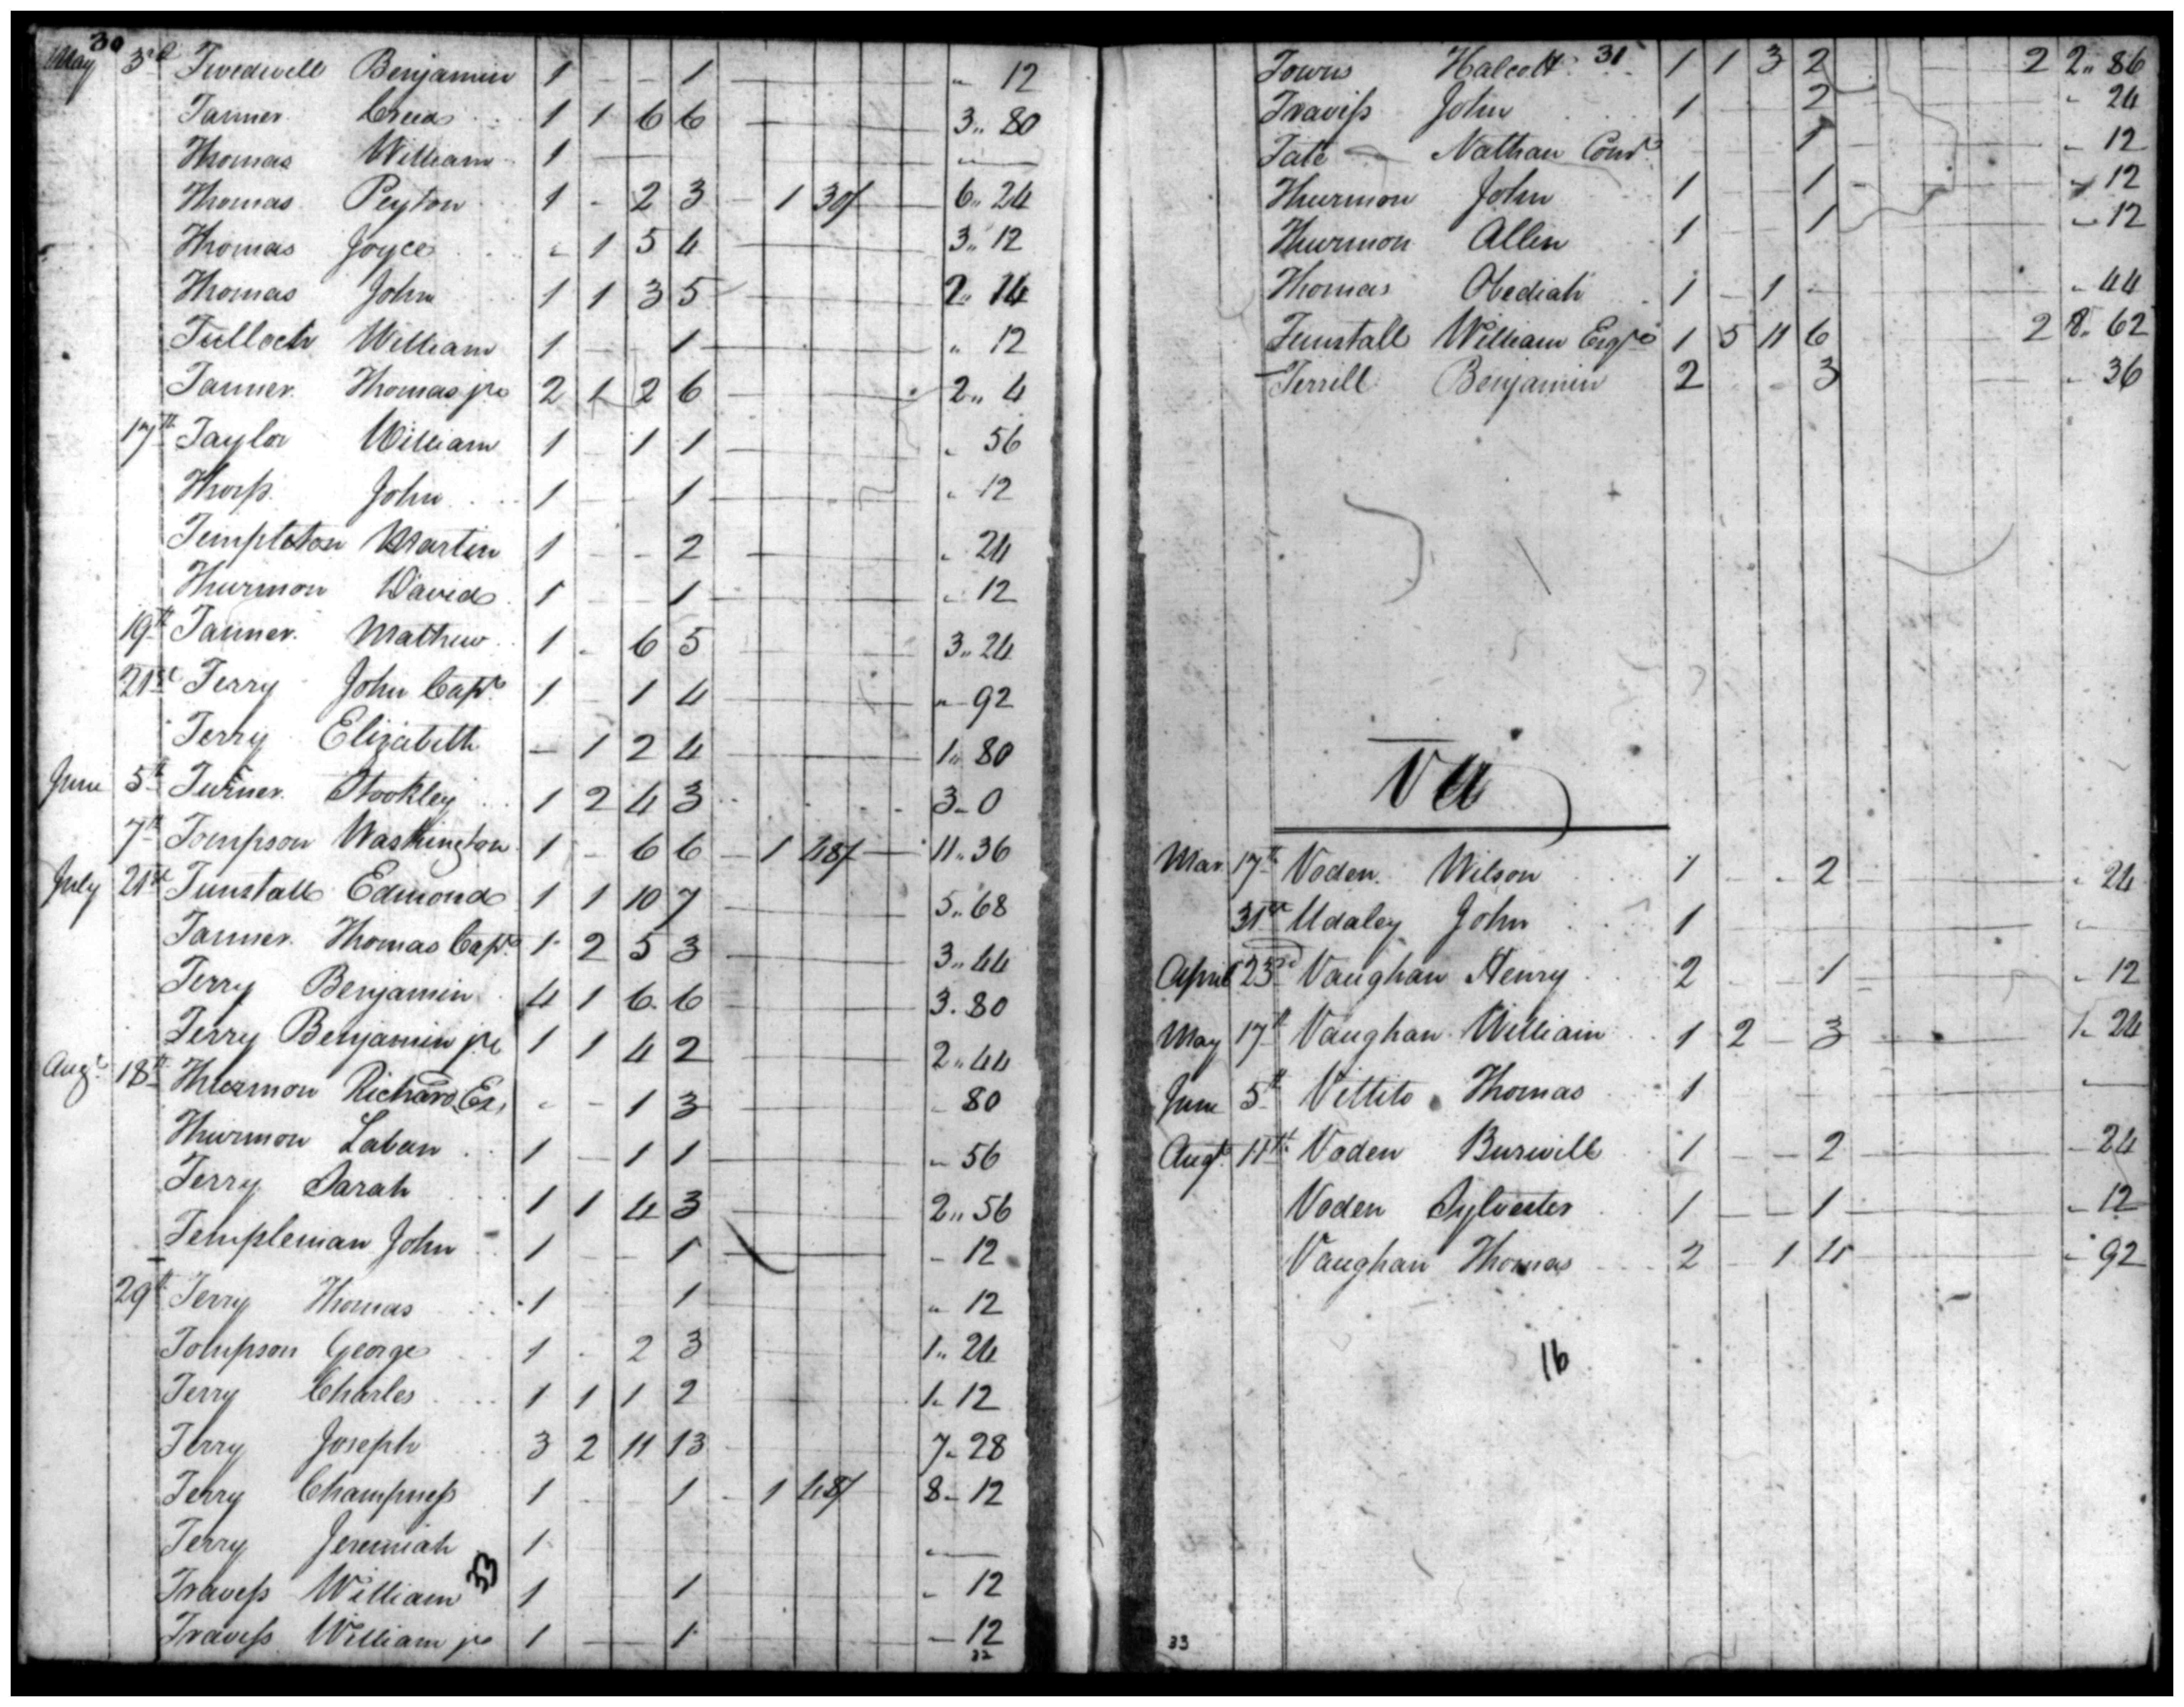 30
May 3d Twedwell Benjamin 1 - - 1 " 12
Tanner Creed 1 1 6 6 3" 80
Thomas William 1 "
Thomas Peyton 1 - 2 3 - 1 30/ 6" 24
Thomas Joyce " 1 5 4 3" 12
Thomas John 1 1 3 5 2" 24
Tulloch William 1 - - 1 " 12
Tanner Thomas jr 2 1 2 6 2" 4
17th Taylor William 1 - 1 1 " 56
Thorp John 1 - - 1 " 12
Templeton Martin 1 - - 2 " 24
Thurmon David 1 - - 1 " 12
19th Tanner Mathew 1 - 6 5 3" 24
21st Terry John Capt 1 - 1 4 " 92
Terry Elizabeth - 1 2 4 1" 80
June 5th Turner Stookley 1 2 4 3 3 - 0
7th Tompson Washington 1 - 6 6 - 1 48/ 11" 36
July 21st Tunstall Edmond 1 1 10 7 5" 68
Tanner Thomas Capt 1 2 5 3 3" 44
Terry Benjamin 4 1 6 6 3. 80
Terry Benjamin jr 1 1 4 2 2" 44
Augt 18th Thurmon Richard Es, " - 1 3 " 80
Thurmon Laban 1 - 1 1 " 56
Terry Sarah 1 1 4 3 2" 56
Templeman John 1 - - 1 - 12
29th Terry Thomas 1 1 " 12
Tompson George 1 - 2 3 1" 24
Terry Charles 1 1 1 2 1" 12
Terry Joseph 3 2 11 13 7" 28
Terry Champness 1 - - 1 - 1 48/ 8 - 12
Terry Jeremiah 1 "
33
Travess William 1 1 " 12
Travess William jr 1 - - 1 - 12
32
31
Towns Halcott 1 1 3 2 2 2" 86
Traviss John 1 2 " 24
Tate Nathan Const 1 " 12
Thurmon John 1 1 " 12
Thurmon Allen 1 1 " 12
Thomas Obediah 1 - 1 - " 44
Tunstall William Esqr 1 5 11 6 2 8" 62
Terrill Benjamin 2 - - 3 " 36
VU
Mar 17th Voden Wilson 1 - - 2 " 24
31st Udaley John 1 "
April 23rd Vaughan Henry 2 - - 1 " 12
May 17th Vaughan William 1 2 - 3 1" 24
June 5th Vittito Thomas 1
Augt 11th Voden Burwill 1 - - 2 - 24
Voden Sylvester 1 - - 1 - 12
Vaughan Thomas 2 - 1 4 " 92
16
33